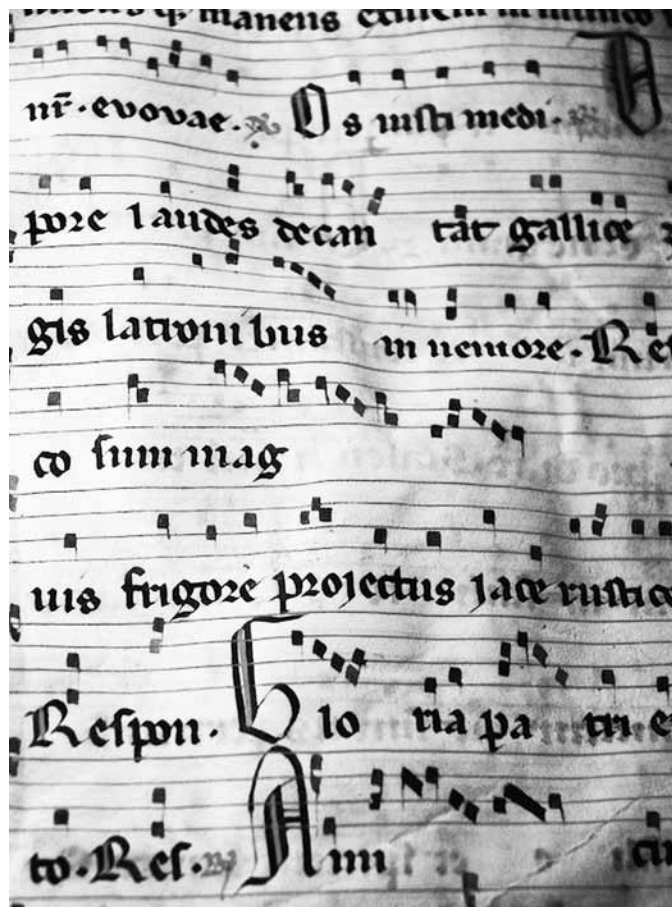 manens exilem in mundo
nr̄. evovae. Os iusti medi.
pore laudes decan tāt gallice
gis lationi bus in nemore. Res
co sum mag
uis frigore projectus jace rustice
Respon. Glo ria pa tri e
to. Res. Ami cu